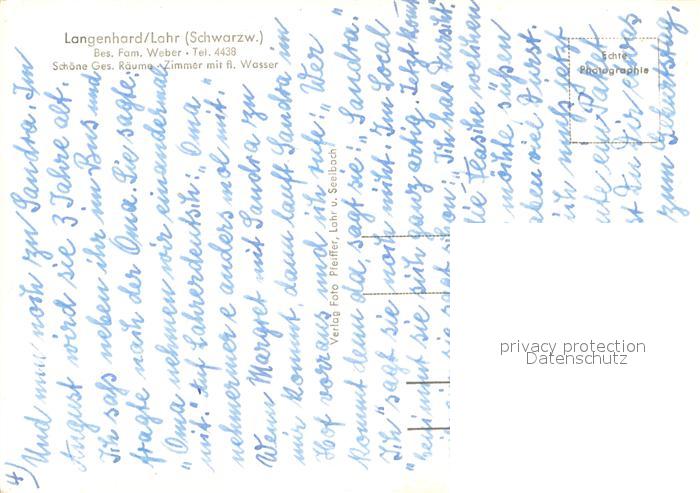 Langenhard/Lahr (Schwarzw.)
Bes. Fam. Weber · Tel. 4438
Schöne Ges. Räume · Zimmer mit fl. Wasser
Echte
Photographie
Verlag Foto Pfeiffer, Lahr u. Seelbach
4)
Und nun noch zu Sandra. Im
August wird sie 3 Jahre alt.
Ich saß neben ihr im Bus und
fragte nach der Oma. Sie sagte:
"Oma nehmen wir einandermal
mit." Auf Lahrerdeutsch: "Oma
nehmermer e anders mol mit."
Wenn Margret mit Sandra zu
mir kommt, dann lauft Sandra im
Hof vorraus und ich rufe: "Wer
kommt denn da, sagt sie: "Sandra."
Ich" sagt sie noch nicht. Im Local
benimmt sie sich ganz artig. Jetzt kennt
sie sagt schon: "Ich habe Durscht."
die welchen
möchte süßen
haben viel Durst.
ich muß jetzt
gute ein Paket
st Du Dir etwas
zum Geburtstag.
privacy protection
Datenschutz